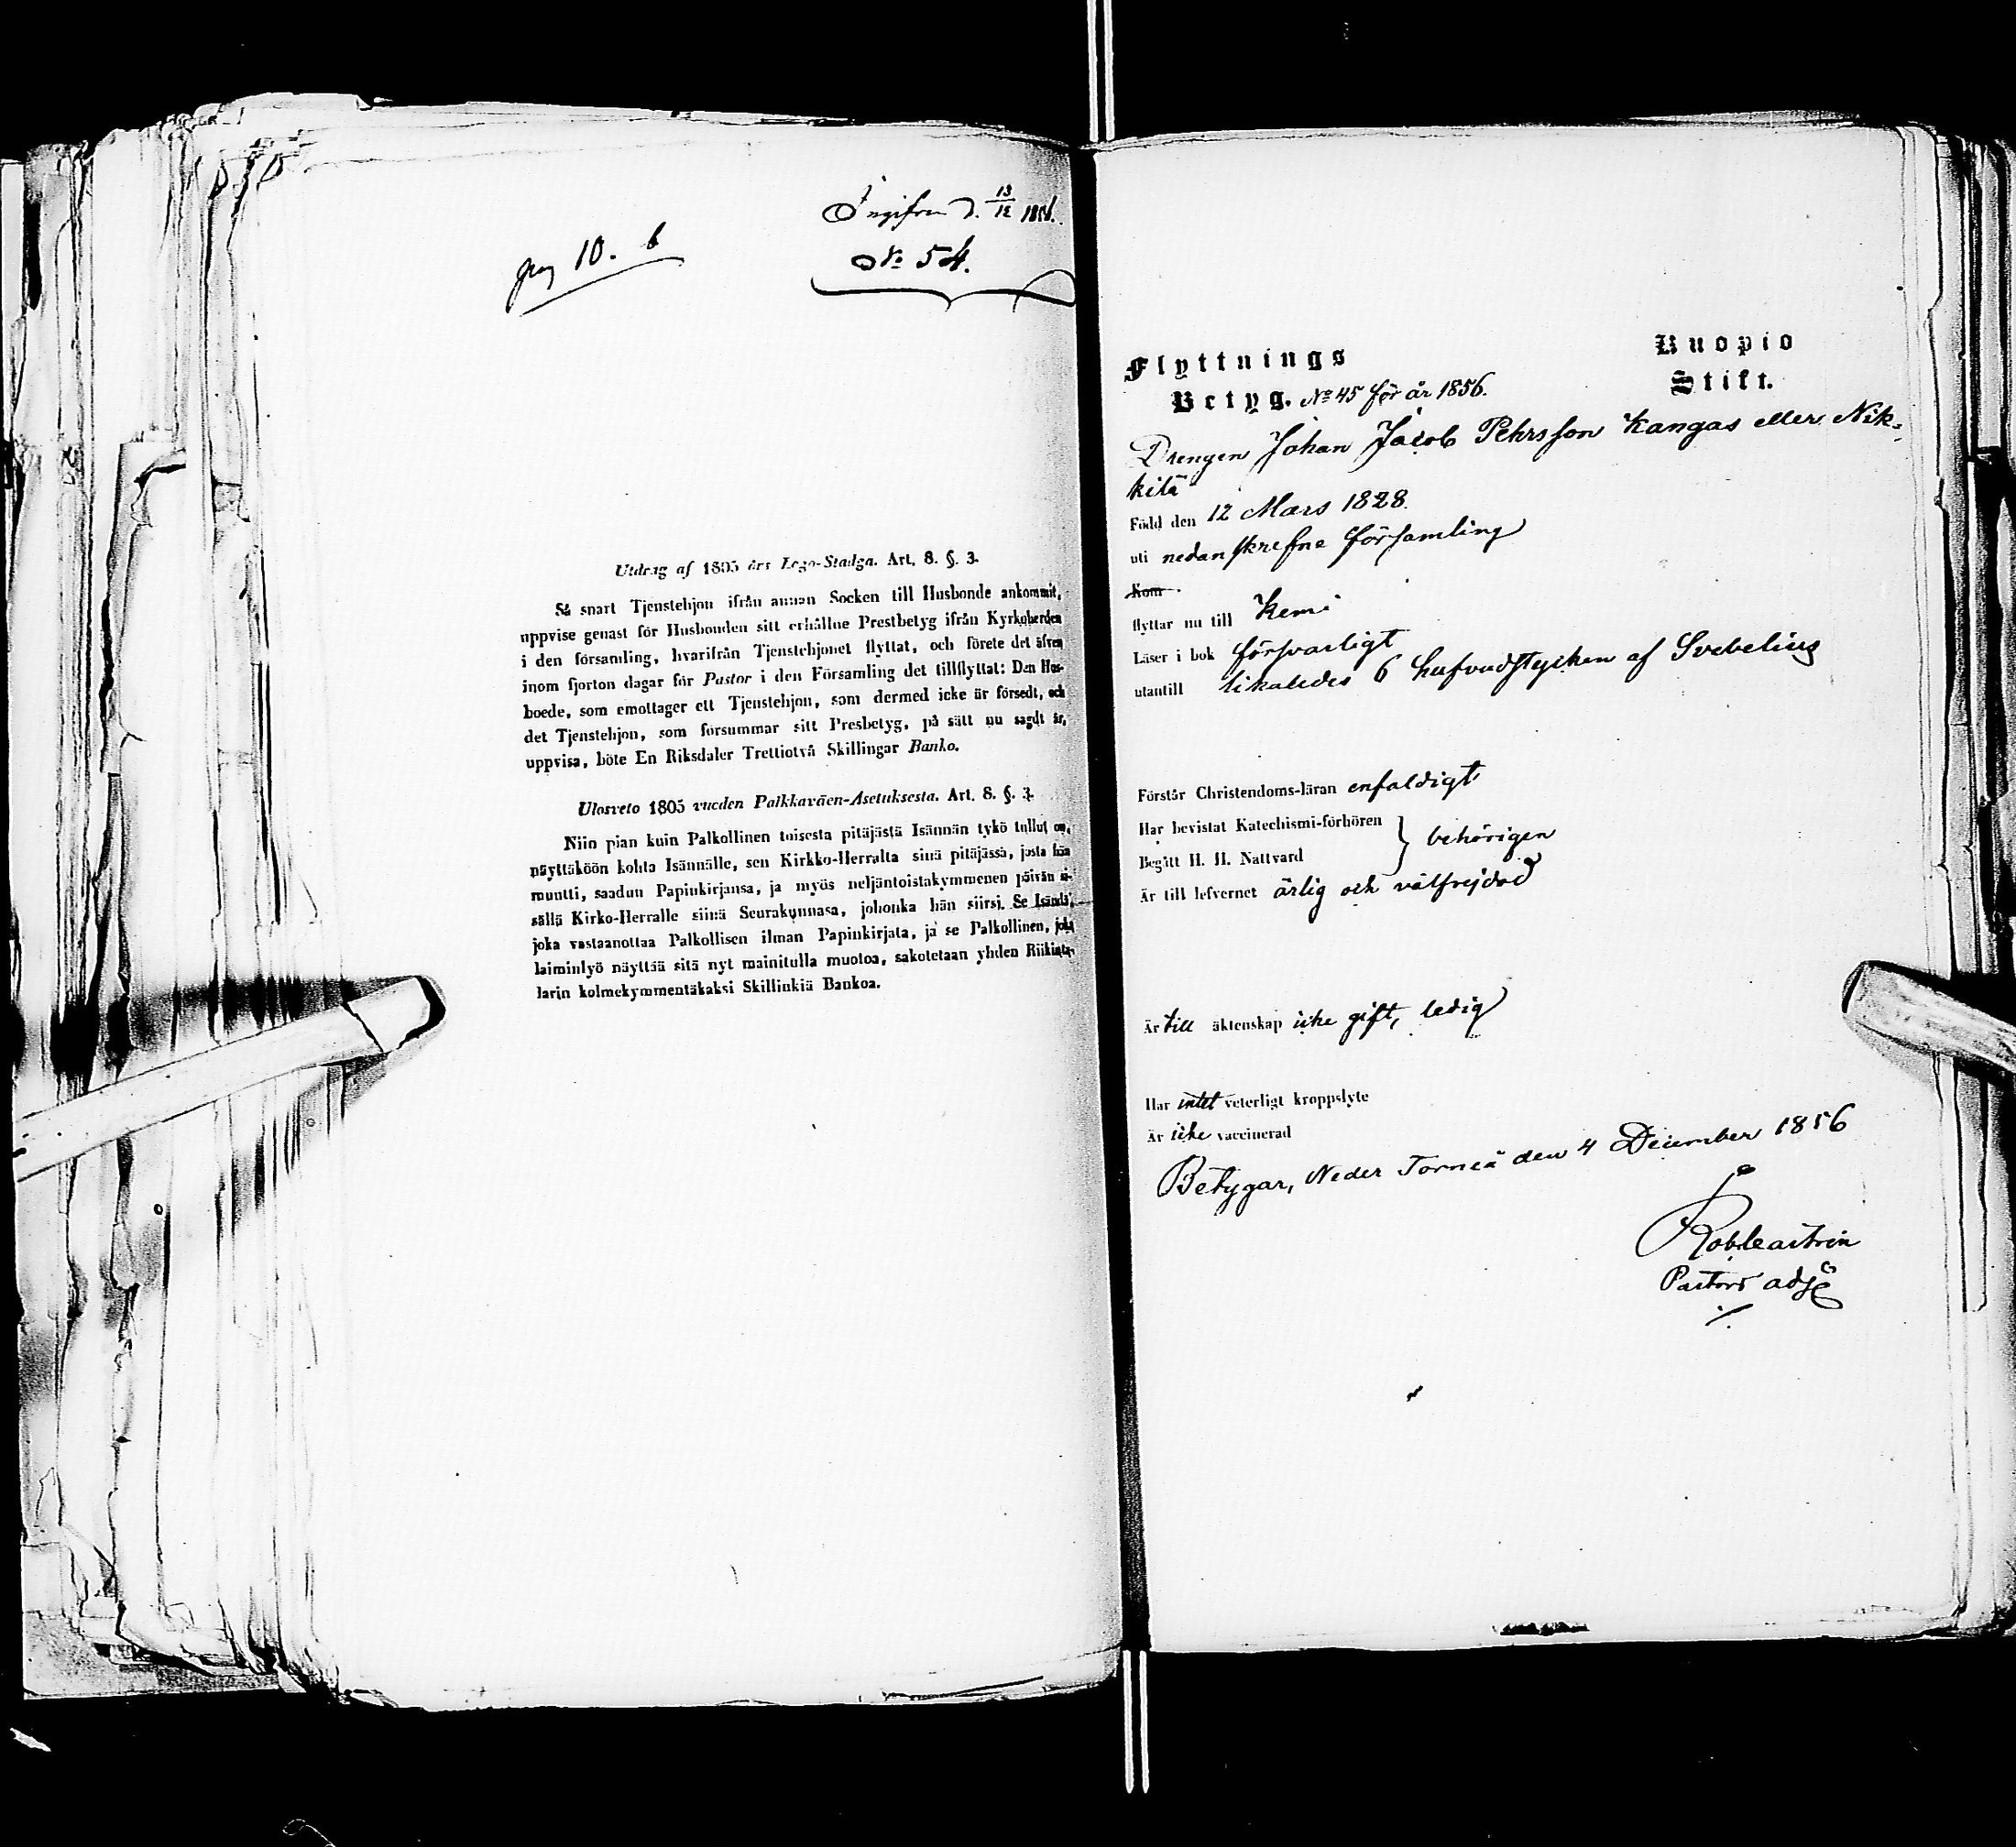 Ingifven d. 13/12 1856.
pag 10. b
No 54.
Utdrag af 1805 års Lego-Stadga. Art. 8. §. 3.
Så snart Tjenstehjon ifrån annan Socken till Husbonde ankommit,
uppvise genast för Husbonden sitt erhållne Prestbetyg ifrån Kyrkoherden
i den församling, hvarifrån Tjenstehjonet flyttat, och förete det äfven
inom fjorton dagar för Pastor i den Församling det tillflyttat: Den Hus-
boede, som emottager ett Tjenstehjon, som dermed icke är försedt, och
det Tjenstehjon, som försummar sitt Presbetyg, på sätt nu sagdt är,
uppvisa, böte En Riksdaler Trettiotvå Skillingar Banko.
Ulosveto 1805 vuoden Palkkaväen-Asetuksesta. Art. 8. §. 3.
Niin pian kuin Palkollinen toisesta pitäjästä Isännän tykö tullut on,
näyttäköön kohta Isännälle, sen Kirkko-Herralta siinä pitäjässä, josta hän
muutti, saadun Papinkirjansa, ja myös neljäntoistakymmenen päivän si-
sällä Kirko-Herralle siinä Seurakunnasa, johonka hän siirsi. Se Isändä,
joka vastaanottaa Palkollisen ilman Papinkirjata, ja se Palkollinen, joka
laiminlyö näyttää sitä nyt mainitulla muotoa, sakotetaan yhden Riikinta-
larin kolmekymmentäkaksi Skillinkiä Bankoa.
Flyttnings Kuopio
Betyg. No 45 för år 1856. Stift.
Drengen Johan Jacob Pehrsson Kangas eller Nik-
kilä
Född den 12 Mars 1828.
uti nedanskrefne församling
Kom
flyttar nu till Kemi
Läser i bok försvarligt
utantill likaledes 6 hufvudstycken af Svebelius
Förstår Christendoms-läran enfaldigt
Har bevistat Katechismi-förhören } behörigen
Begått H. H. Nattvard
Är till lefvernet ärlig och välfrejdad
Är till äktenskap icke gift, ledig
Har intet veterligt kroppslyte
Är icke vaccinerad
Betygar, Neder Torneå den 4 December 1856
Pastors adj